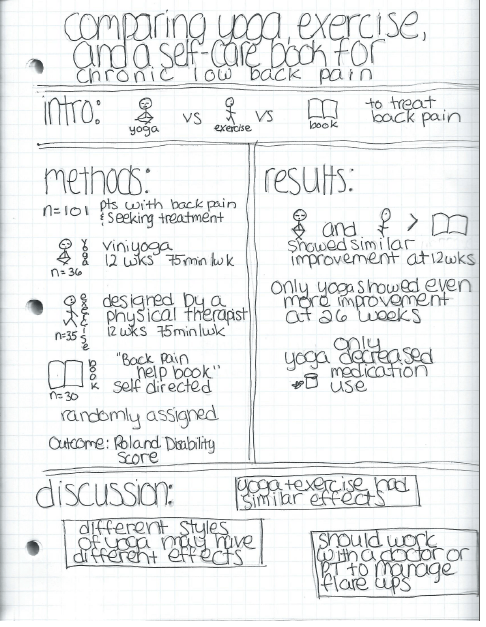 comparing yoga, exercise,
and a self-care book for
chronic low back pain
intro: vs vs to treat
back pain
yoga exercise book
methods:
n=101 pts with back pain
& seeking treatment
yoga
viniyoga
12 wks 75min/wk
n=36
exercise
designed by a
physical therapist
12 wks 75min/wk
n=35
book
"Back pain
help book"
self directed
n=30
randomly assigned
Outcome: Roland Disability
Score
results:
and >
showed similar
improvement at 12wks
only yoga showed even
more improvement
at 26 weeks
only
yoga decreased
medication
use
discussion:
yoga+exercise had
similar effects
different styles
of yoga may have
different effects
should work
with a doctor or
PT to manage
flare ups